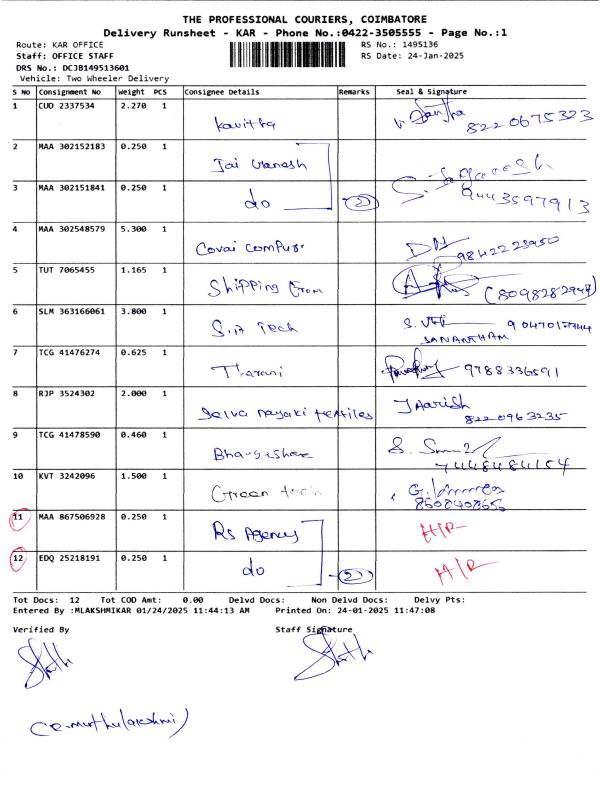 THE PROFESSIONAL COURIERS, COIMBATORE
Delivery Runsheet - KAR - Phone No.:0422-3505555 - Page No.:1
Route: KAR OFFICE RS No.: 1495136
Staff: OFFICE STAFF RS Date: 24-Jan-2025
DRS No.: DCJB149513601
Vehicle: Two Wheeler Delivery
S No Consignment No Weight PCS Consignee Details Remarks Seal & Signature
1 CUD 2337534 2.270 1 Kavitha 8220675323
2 MAA 302152183 0.250 1 Jai Ganesh
3 MAA 302151841 0.250 1 do 2 9443597913
4 MAA 302548579 5.300 1 Covai compus. 9842223950
5 TUT 7065455 1.165 1 Shipping from (8098282948)
6 SLM 363166061 3.800 1 Tech
SANANTHAM
7 TCG 41476274 0.625 1 Tharani 9788336591
8 RJP 3524302 2.000 1 Selva nayaki textiles J Aarish
8220963235
9 TCG 41478590 0.460 1
7448484154
10 KVT 3242096 1.500 1 Green tech
11 MAA 867506928 0.250 1 Rs Agency H/R
12 EDQ 25218191 0.250 1 do 2 H/R
Tot Docs: 12 Tot COD Amt: 0.00 Delvd Docs: Non Delvd Docs: Delvy Pts:
Entered By :MLAKSHMIKAR 01/24/2025 11:44:13 AM Printed On: 24-01-2025 11:47:08
Verified By Staff Signature
(E. muthulakshmi)